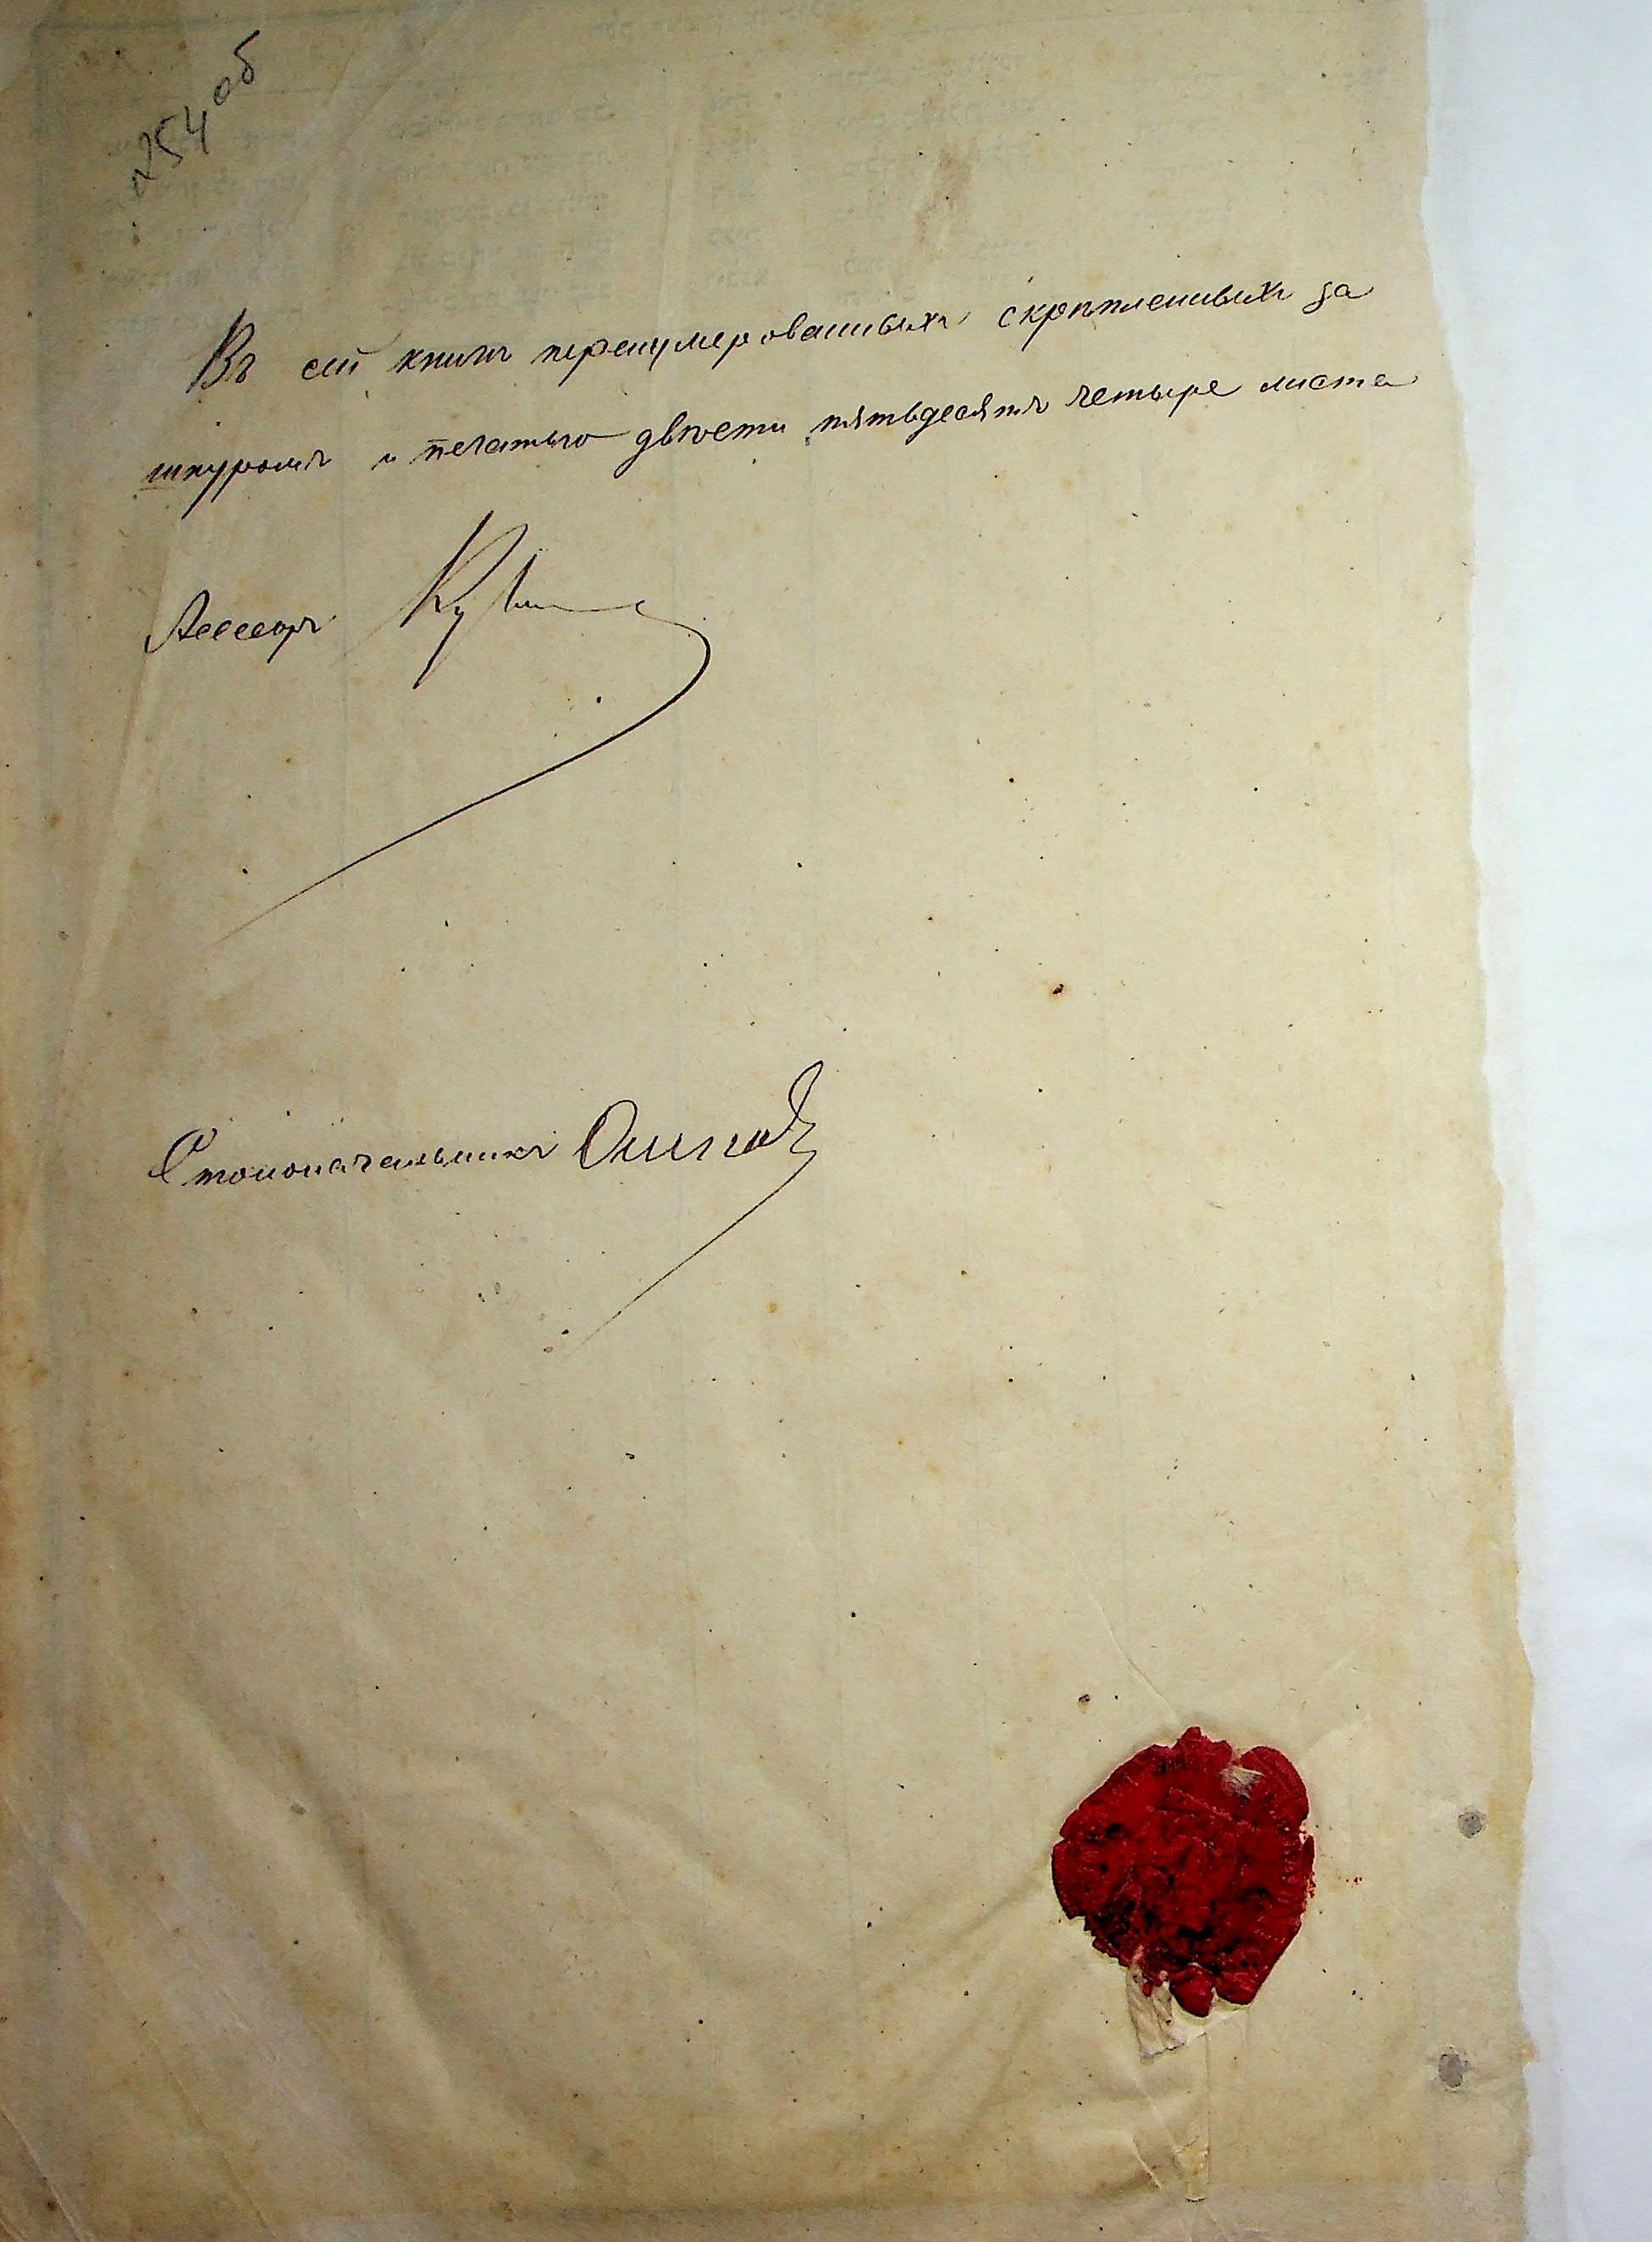 254 об
Въ сей книгѣ перенумерованныхъ скрѣпленныхъ за
шнуромъ и печатью двѣсти пятьдесятъ четыре листа
Асесоръ
Столоначальникъ